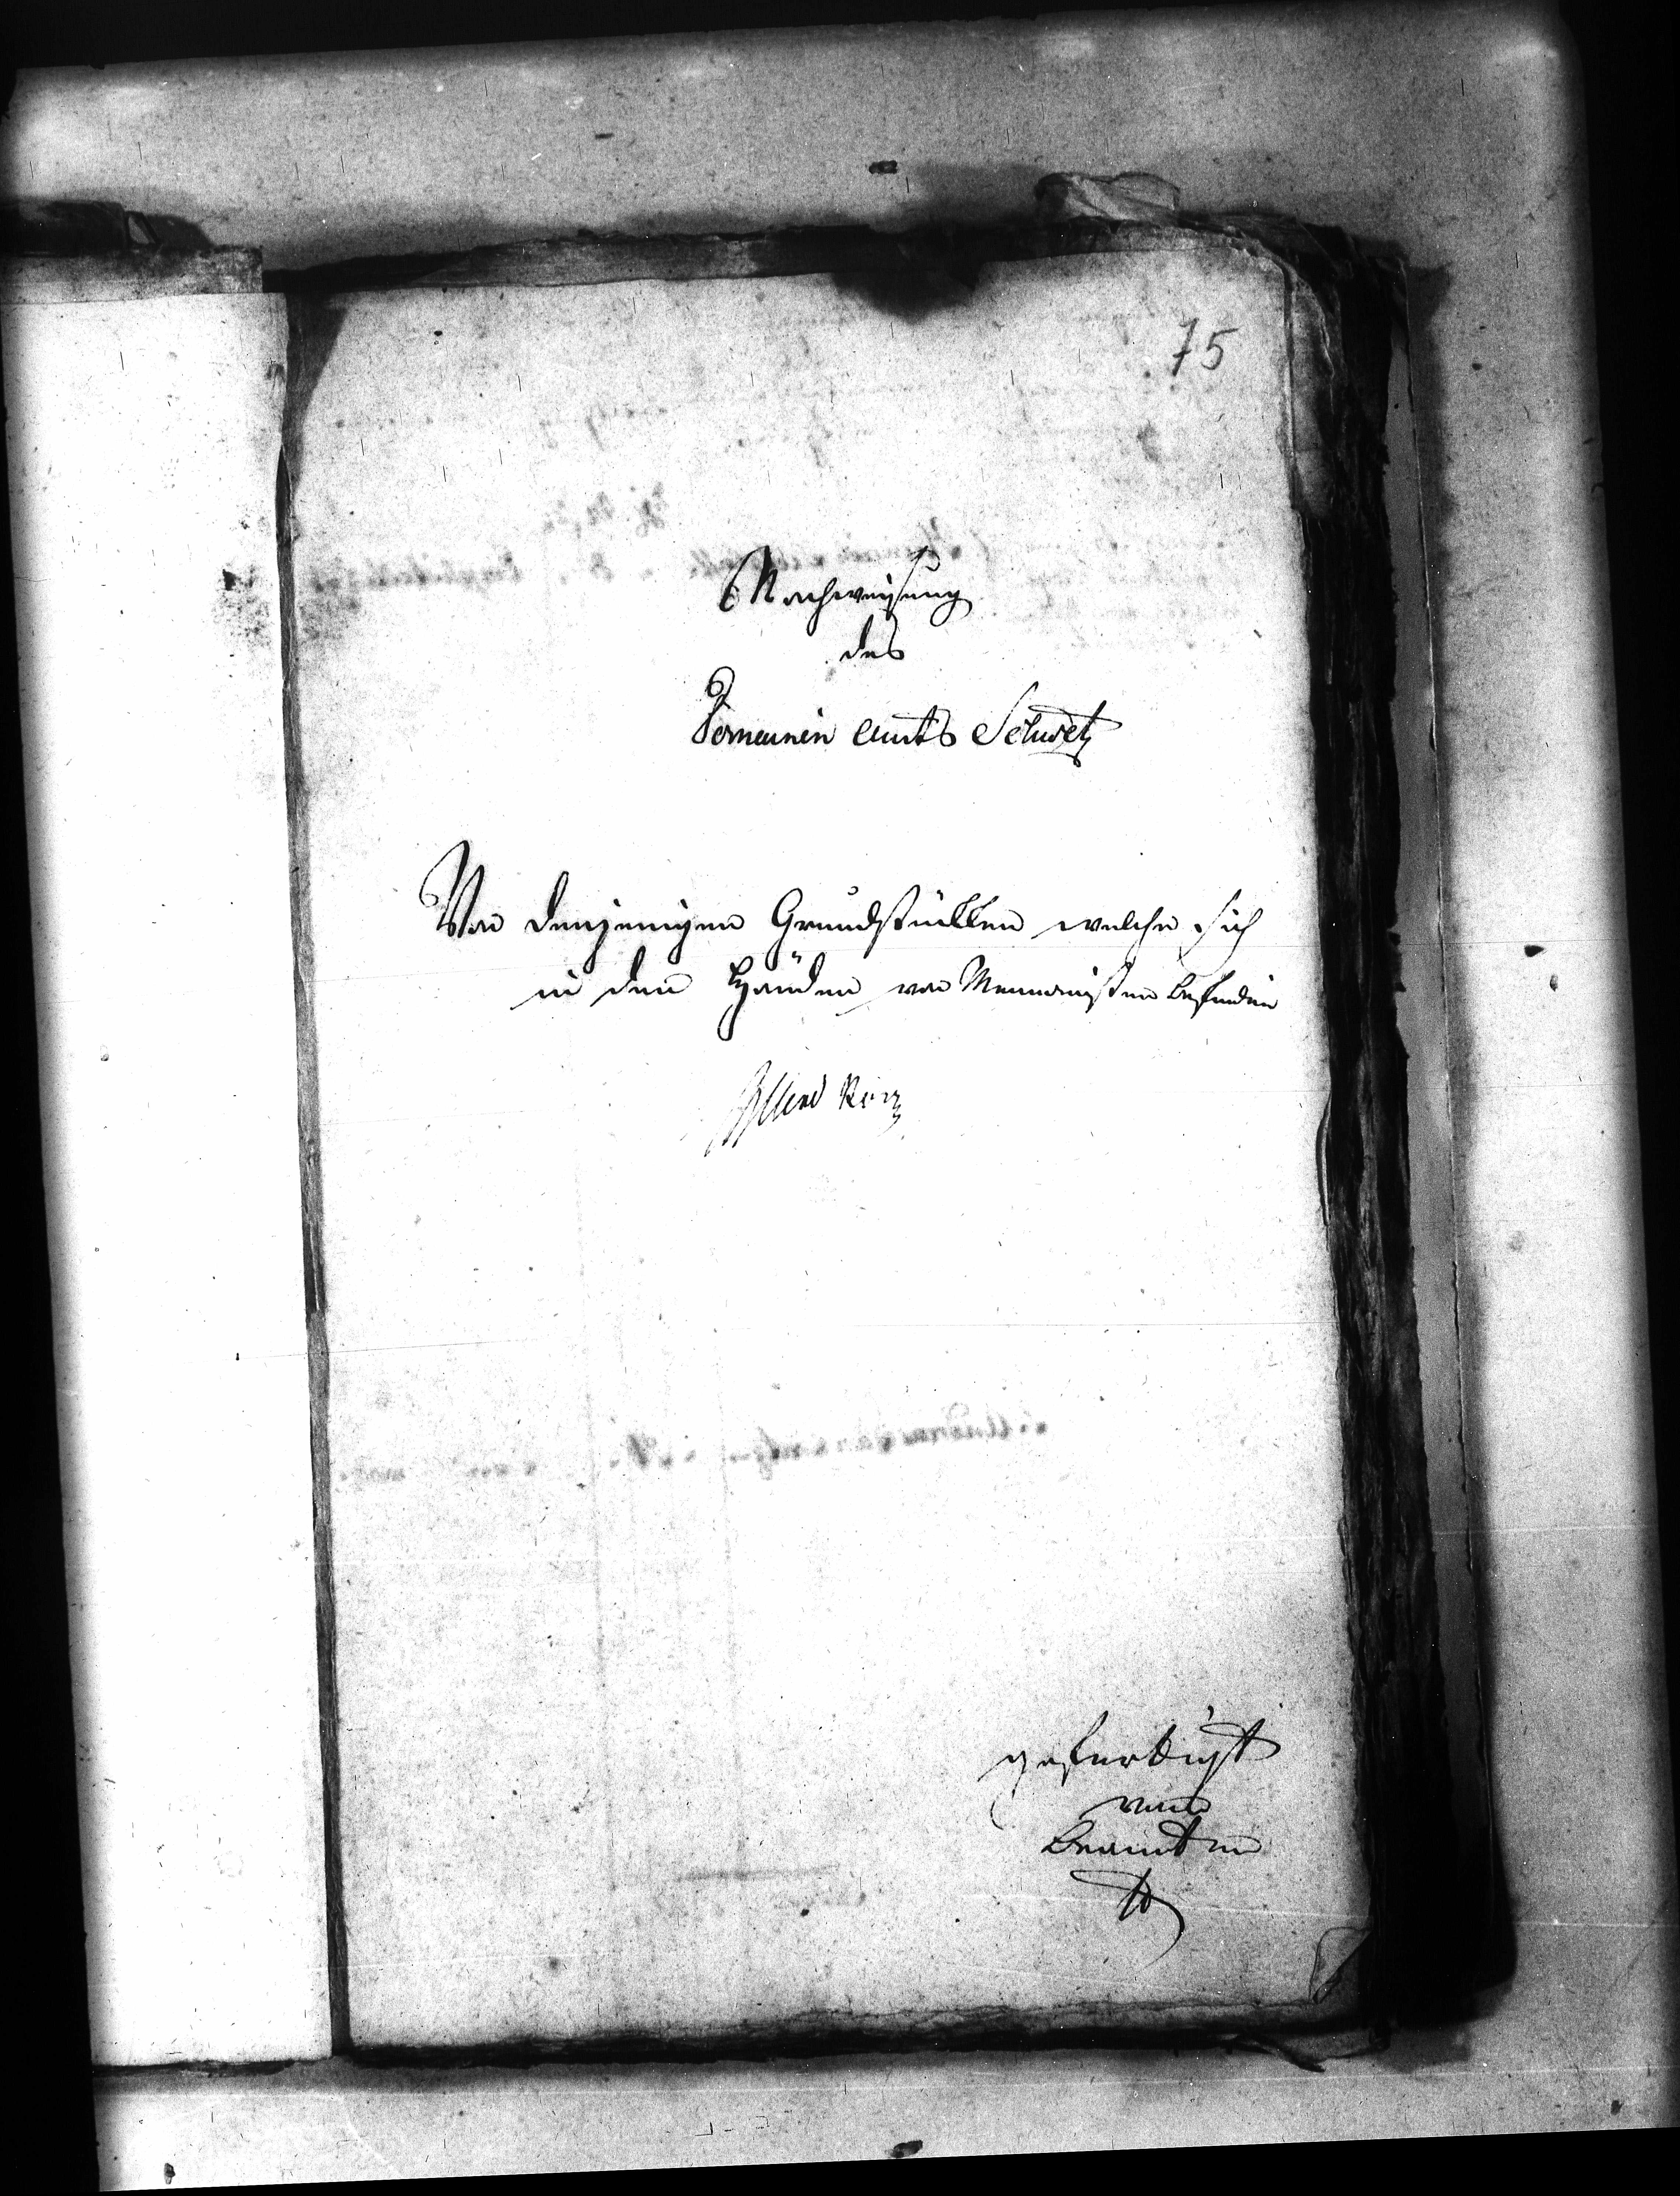 75
Nachweisung
des
Domainen Amts Schwetz
Von denjenigen Grundstükken welche sich
in den Händen von Mennonisten befinden
gefertigt
vom
Beamten